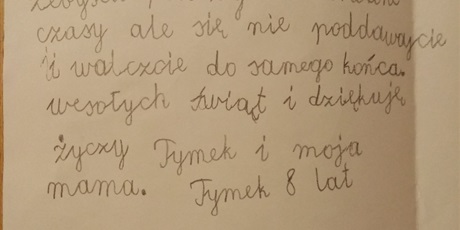 czasy ale się nie poddawajcie
i walczcie do samego końca.
wesołych świąt i dziękuję
życzy Tymek i moja
mama. Tymek 8 lat